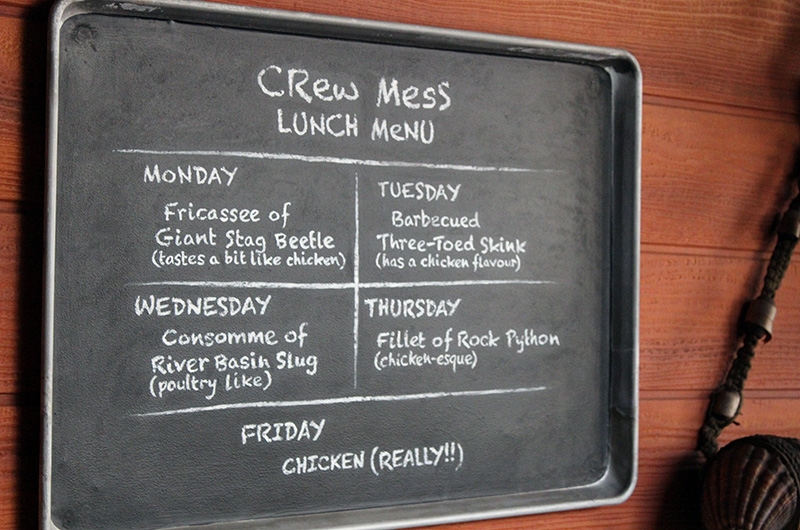 CRew Mess
LUNCH MeNU
MONDAY
Fricassee of
Giant Stag Beetle
(tastes a bit like chicken)
TUESDAY
Barbecued
Three-Toed Skink
(has a chicken flavour)
WEDNESDAY
Consomme of
River Basin Slug
(poultry like)
THURSDAY
Fillet of Rock Python
(chicken-esque)
FRIDAY
CHICKEN (REALLY!!)